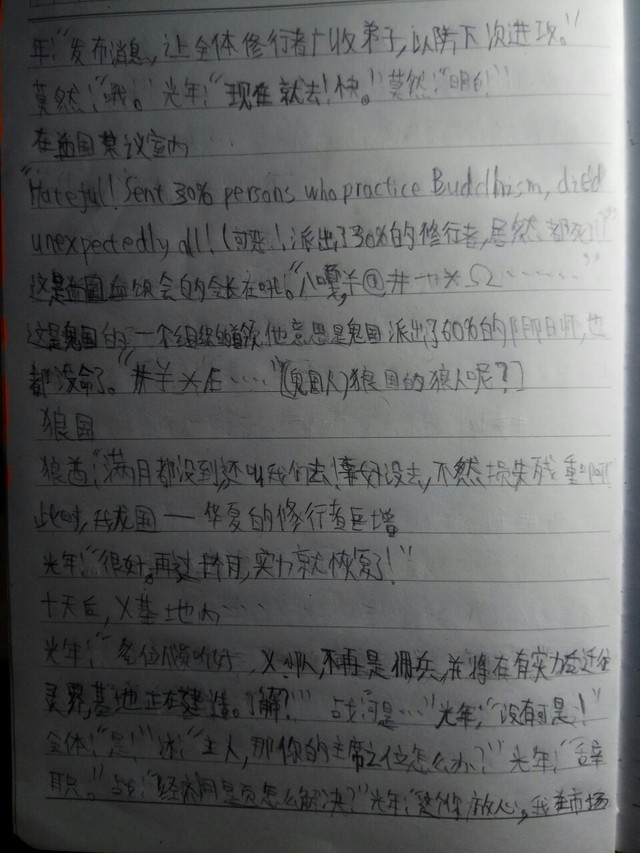 年：“发布消息，让全体修行者广收弟子，以防下次进攻。”
莫然：“哦。”光年：“现在就去！快。”莫然：“明白！”
在血国某议室内……
“Hateful! Sent 30% persons who practice Buddhism, died
unexpectedly all! （可恶！派出了30%的修行者，居然都死
这是血国血饮会的会长在吼。“八嘎，羊@井一廾米Ω……”
这是鬼国的一个组织的首领，他意思是鬼国派出了60%的阴阳师，也
都没命了。“井羊乂后……”[（鬼国人）狼国的狼人呢？]
狼国
狼酋：“满月都没到，还叫我们去！幸好没去，不然损失残重
此时，我龙国——华夏的修行者巨增
光年：“很好。再过 月，实力就恢复了！”
十天后，X基地内……
光年：“各位 X 队，不再是佣兵，并将在有实力后迁往
灵界，基地正在建造。了解？” 战：“可是…”光年：“没有可是！”
全体：“是！” ：“主人，那你的主席之位怎么办？”光年：“辞
职。”战：“经济 怎么解决？”光年：“ 放心，我在市场